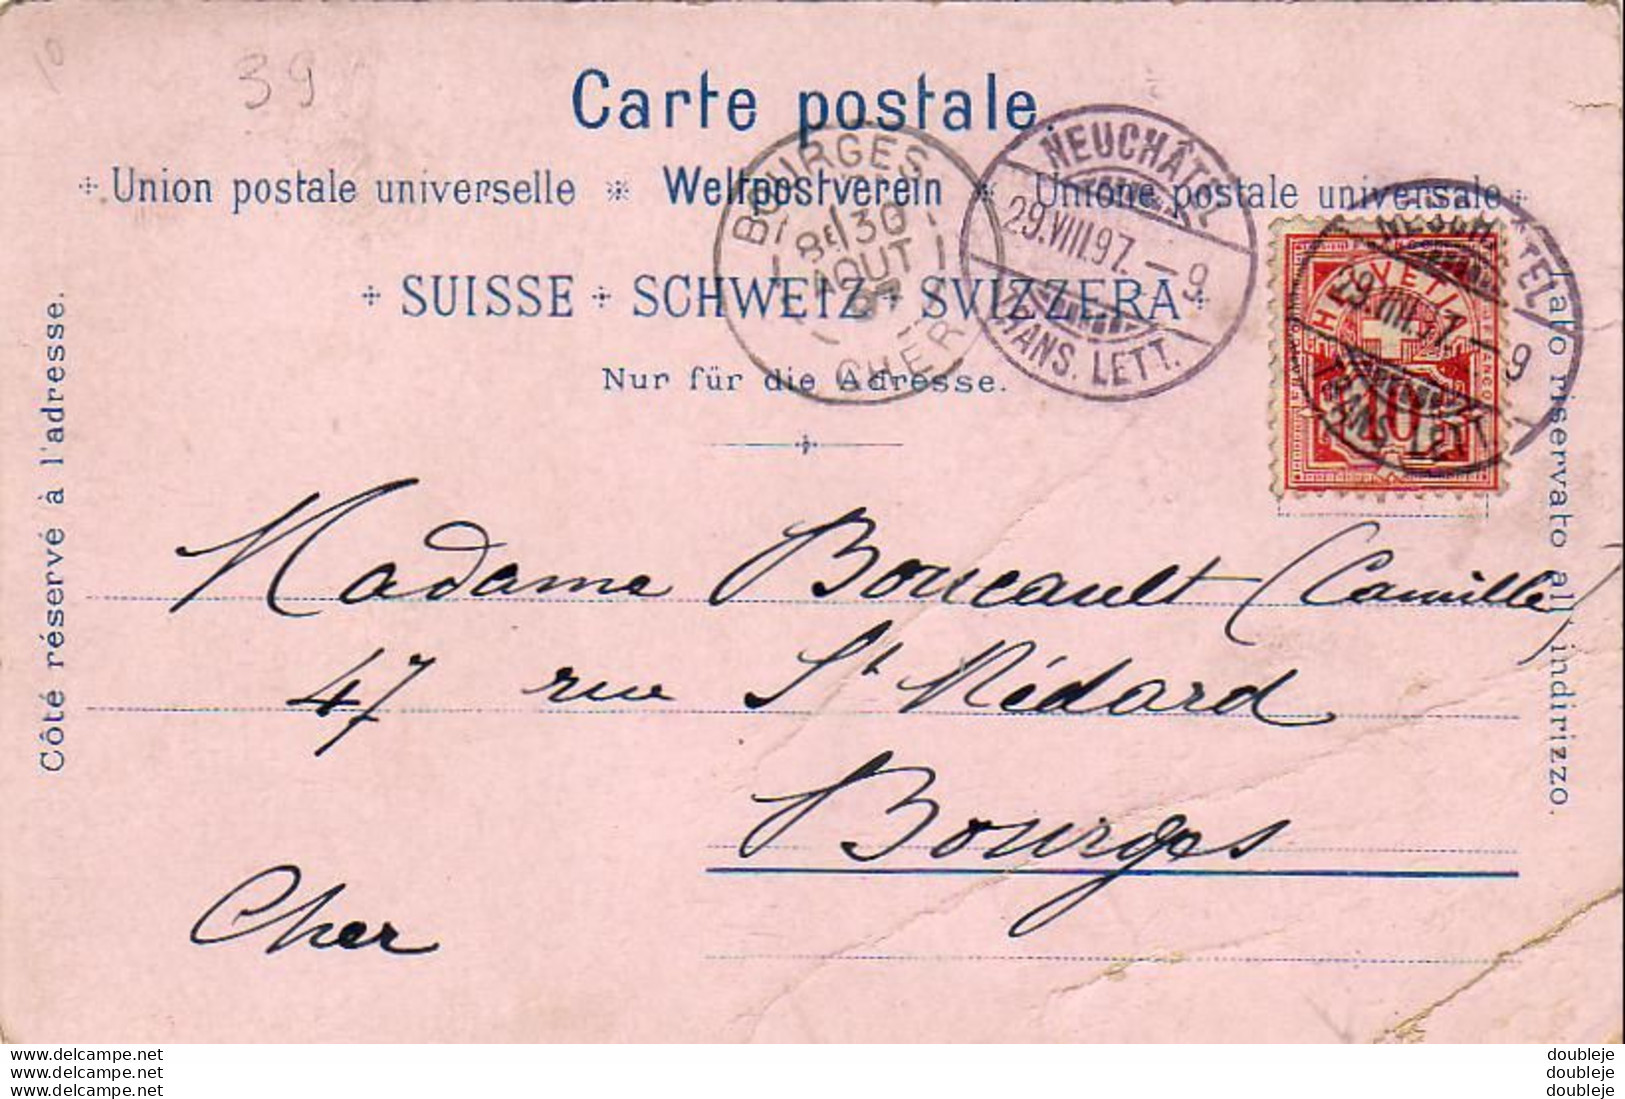 39
Carte postale.
Union postale universelle * Weltpostverein * Unione postale universale
SUISSE + SCHWEIZ + SVIZZERA
Nur für die Adresse.
Côté réservé à l'adresse.
Lato riservato all'indirizzo.
BOURGES
8E/30
AOUT
97
CHER
NEUCHÂTEL
29.VIII.97.–9
TRANS. LETT.
NEUCHÂTEL
29.VIII.97.–9
TRANS. LETT.
HELVETIA
FRANCO
10
Madame Boucault (Camille)
47 rue St Médard
Bourges
Cher
www.delcampe.net
www.delcampe.net
www.delcampe.net
doubleje
doubleje
doubleje